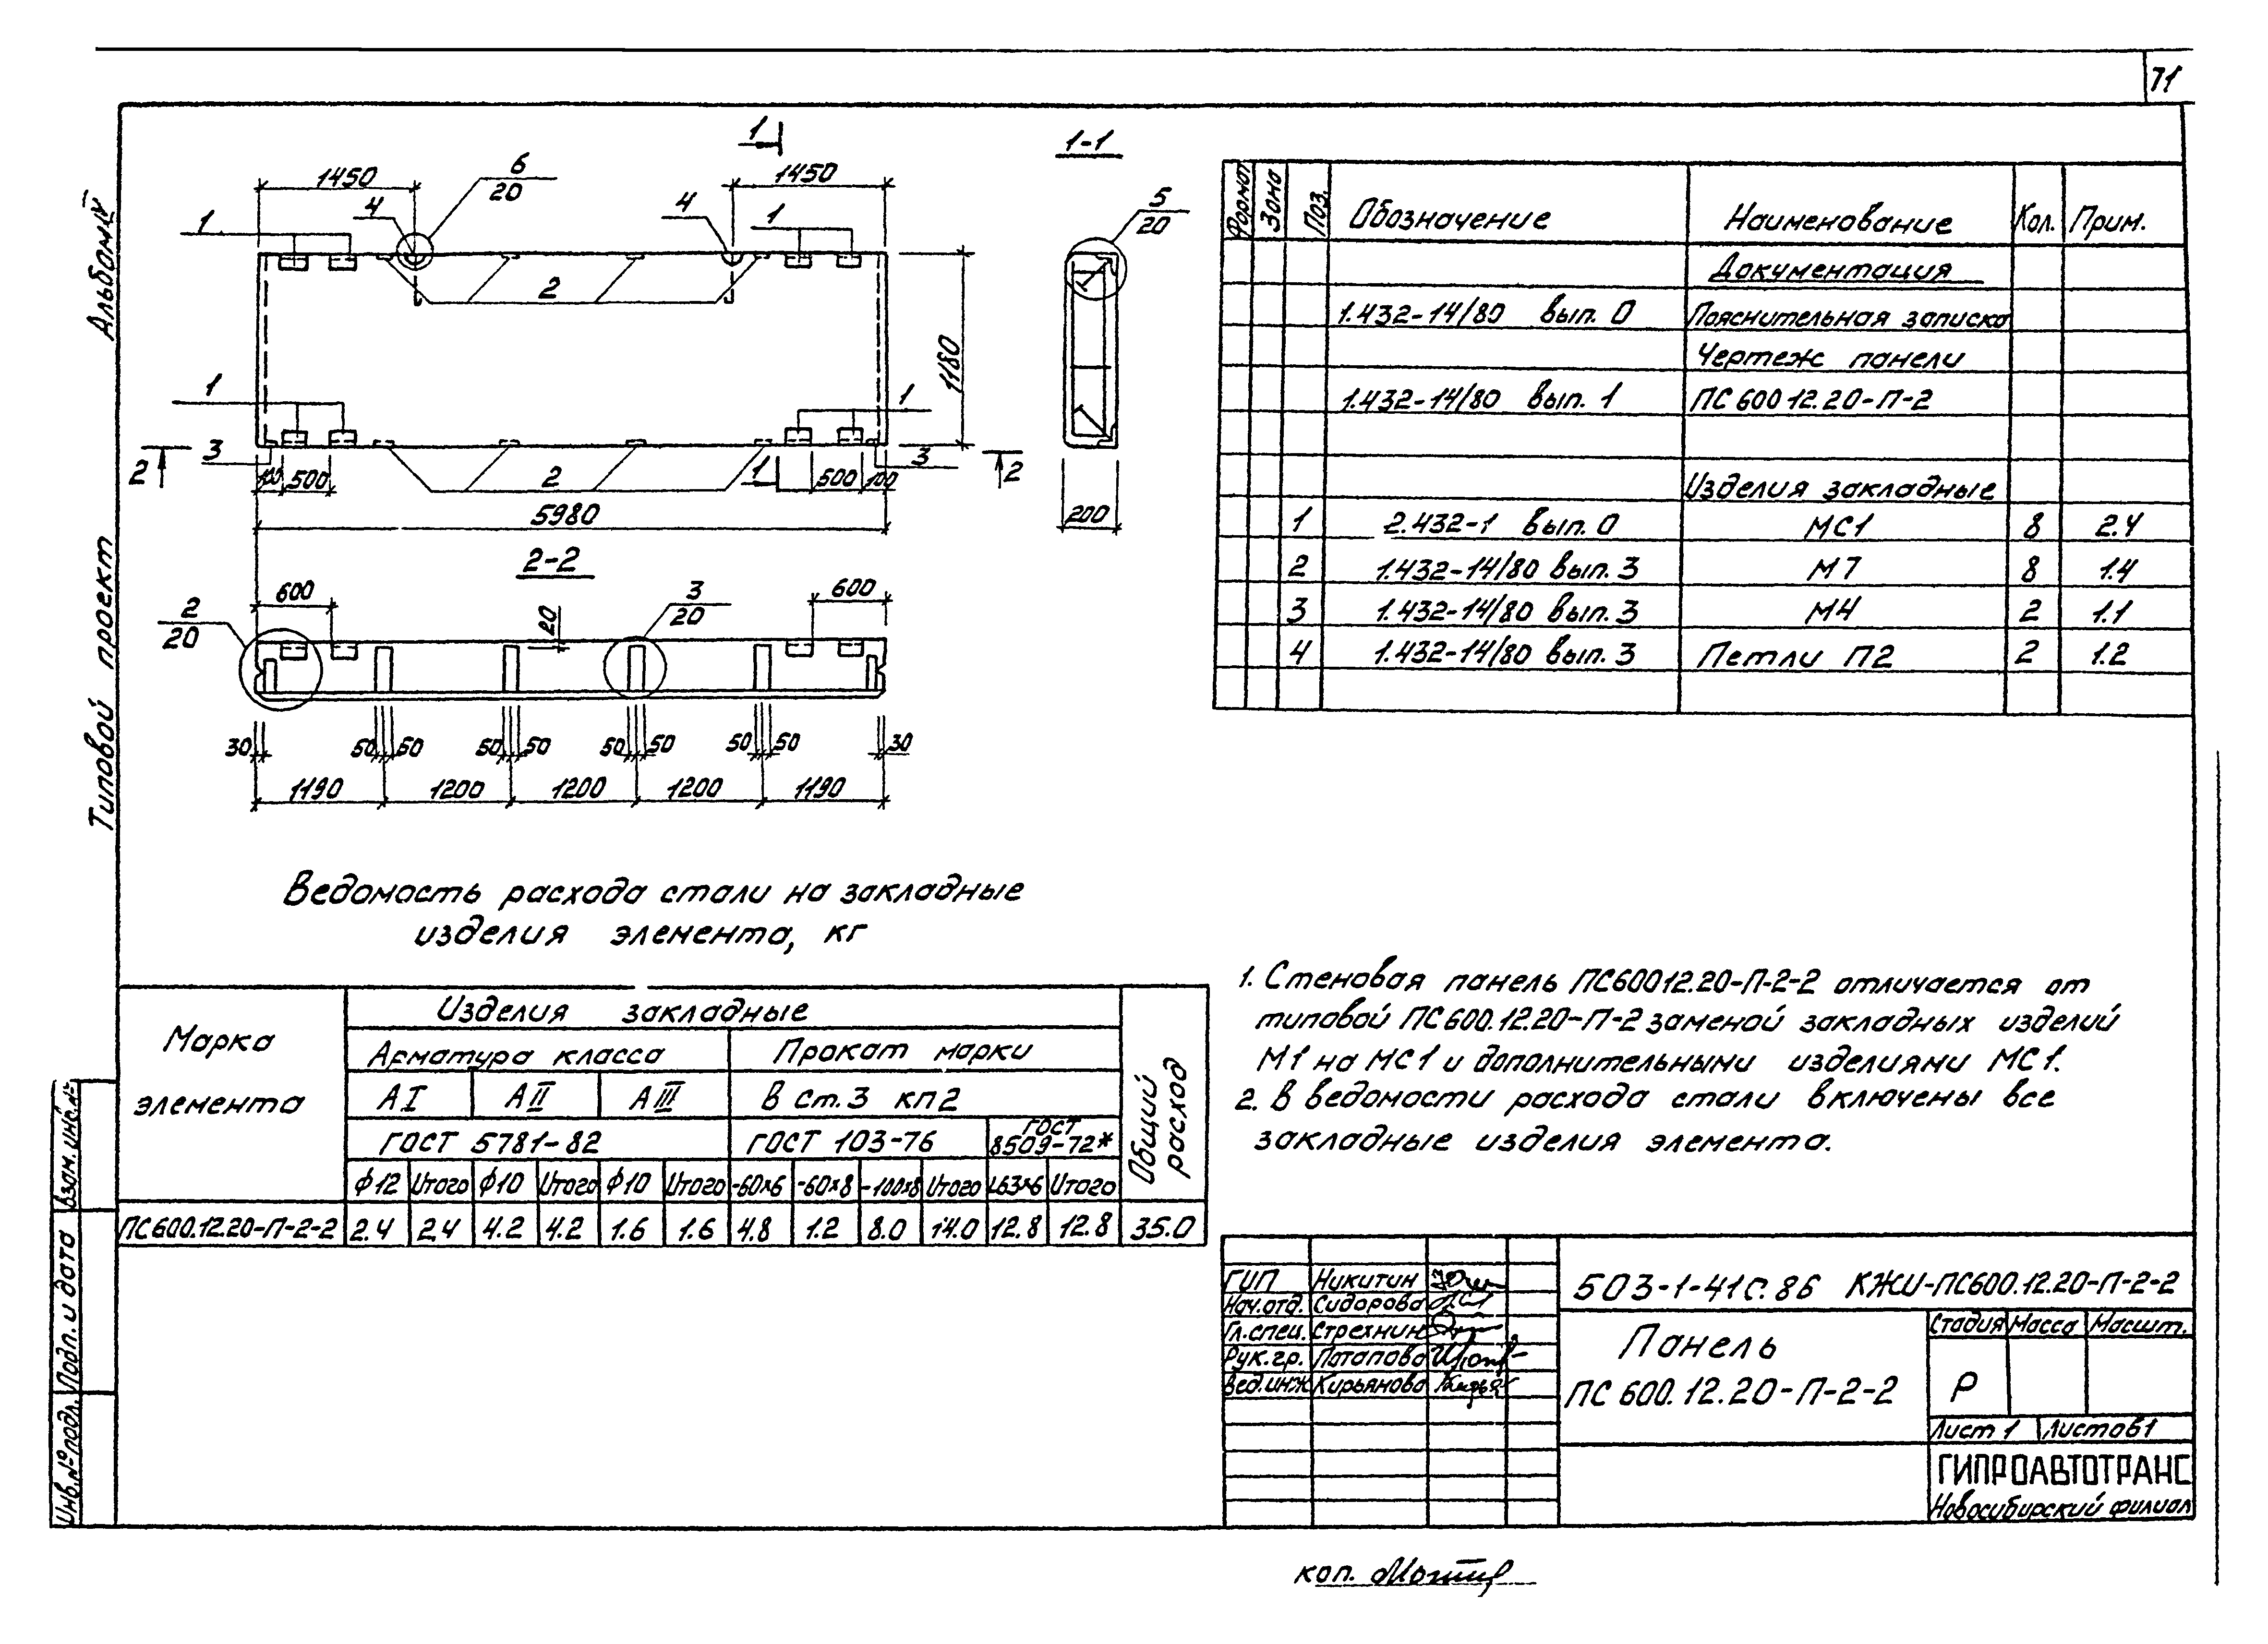 71
Альбом IV
Типовой проект
1
1-1
1450
6
20
1450
4
4
1
1
5
20
2
1180
1
1
3
2
1
3
2
2
100
500
500
100
5980
200
2-2
600
600
2
20
3
20
20
30
50 50
50 50
50 50
50 50
30
1190
1200
1200
1200
1190
Формат Зона Поз. Обозначение Наименование Кол. Прим.
Документация
1.432-14/80 вып. 0 Пояснительная записка
Чертеж панели
1.432-14/80 вып. 1 ПС 600 12.20-П-2
Изделия закладные
1 2.432-1 вып. 0 МС1 8 2.4
2 1.432-14/80 вып. 3 М7 8 1.4
3 1.432-14/80 вып. 3 М4 2 1.1
4 1.432-14/80 вып. 3 Петли П2 2 1.2
Ведомость расхода стали на закладные
изделия элемента, кг
Марка
элемента
Изделия закладные
Общий
расход
Арматура класса Прокат марки
А I А II А III В ст. 3 кп2
ГОСТ 5781-82 ГОСТ 103-76 ГОСТ 8509-72*
ϕ12 Итого ϕ10 Итого ϕ10 Итого -60×6 -60×8 -100×8 Итого L63×6 Итого
ПС600.12.20-П-2-2 2.4 2.4 4.2 4.2 1.6 1.6 4.8 1.2 8.0 14.0 12.8 12.8 35.0
1. Стеновая панель ПС60012.20-П-2-2 отличается от
типовой ПС600.12.20-П-2 заменой закладных изделий
М1 на МС1 и дополнительными изделиями МС1.
2. В ведомости расхода стали включены все
закладные изделия элемента.
Взам. инв. №
Подп. и дата
Инв. № подл.
ГИП Никитин
Нач.отд. Сидорова
Гл.спец. Стрехнин
Рук.гр. Потапова
Вед.инж Кирьянова
503-1-41с.86 КЖИ-ПС600.12.20-П-2-2
Панель
ПС 600.12.20-П-2-2
Стадия Масса Масшт.
Р
Лист 1 Листов 1
ГИПРОАВТОТРАНС
Новосибирский филиал
коп.